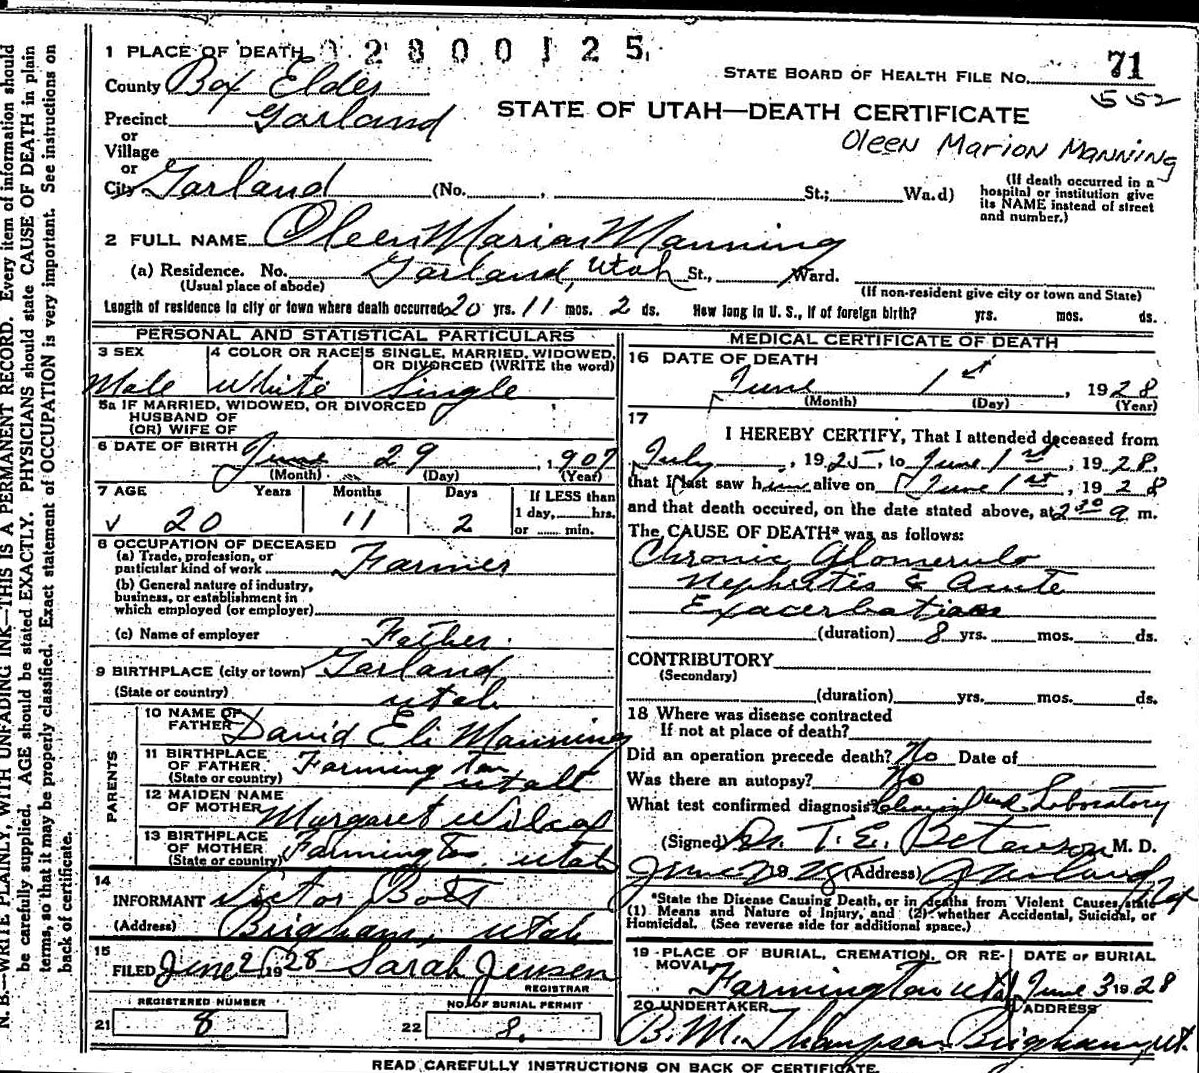 N. B.—WRITE PLAINLY, WITH UNFADING INK—THIS IS A PERMANENT RECORD. Every item of information should
be carefully supplied. AGE should be stated EXACTLY. PHYSICIANS should state CAUSE OF DEATH in plain
terms, so that it may be properly classified. Exact statement of OCCUPATION is very important. See instructions on
back of certificate.
1 PLACE OF DEATH 02800125
STATE BOARD OF HEALTH FILE NO. 71
552
County Box Elder
STATE OF UTAH—DEATH CERTIFICATE
Precinct Garland
Oleen Marion Manning
or
Village
or
City Garland (No. , St.; Wa.d)
(If death occurred in a
hospital or institution give
its NAME instead of street
and number.)
2 FULL NAME Oleen Marion Manning
(a) Residence. No. Garland, Utah St., Ward.
(Usual place of abode) (If non-resident give city or town and State)
Length of residence in city or town where death occurred 20 yrs. 11 mos. 2 ds. How long in U. S., if of foreign birth? yrs. mos. ds.
PERSONAL AND STATISTICAL PARTICULARS
3 SEX
Male
4 COLOR OR RACE
White
5 SINGLE, MARRIED, WIDOWED,
OR DIVORCED (WRITE the word)
Single
5a IF MARRIED, WIDOWED, OR DIVORCED
HUSBAND OF
(OR) WIFE OF
6 DATE OF BIRTH June 29, 1907
(Month) (Day) (Year)
7 AGE Years Months Days If LESS than
1 day, hrs.
20 11 2 or min.
8 OCCUPATION OF DECEASED
(a) Trade, profession, or
particular kind of work Farmer
(b) General nature of industry,
business, or establishment in
which employed (or employer)
(c) Name of employer Father.
9 BIRTHPLACE (city or town) Garland
(State or country) Utah
PARENTS
10 NAME OF
FATHER David Eli Manning
11 BIRTHPLACE
OF FATHER Farmington
(State or country) Utah
12 MAIDEN NAME
OF MOTHER Margaret Wilcox
13 BIRTHPLACE
OF MOTHER Farmington, Utah
(State or country)
14
INFORMANT Victor Bott
(Address) Brigham, Utah
15
FILED June 2 1928 Sarah Jensen
REGISTRAR
REGISTERED NUMBER NO. OF BURIAL PERMIT
21 8 22 8.
MEDICAL CERTIFICATE OF DEATH
16 DATE OF DEATH
June 1st, 1928
(Month) (Day) (Year)
17
I HEREBY CERTIFY, That I attended deceased from
July, 1925, to June 1st, 1928,
that I last saw him alive on June 1st, 1928
and that death occured, on the date stated above, at 2 30 a m.
The CAUSE OF DEATH* was as follows:
Chronic Glomerulo
Nephritis & Acute
Exacerbation
(duration) 8 yrs. mos. ds.
CONTRIBUTORY
(Secondary)
(duration) yrs. mos. ds.
18 Where was disease contracted
If not at place of death?
Did an operation precede death? No Date of
Was there an autopsy? No
What test confirmed diagnosis? Clinical and Laboratory
(Signed) Dr. T. E. M. D.
June 2 1928 (Address) Garland Utah
*State the Disease Causing Death, or in deaths from Violent Causes, state
(1) Means and Nature of Injury, and (2) whether Accidental, Suicidal, or
Homicidal. (See reverse side for additional space.)
19 PLACE OF BURIAL, CREMATION, OR RE-
MOVAL
Farmington Utah
DATE OF BURIAL
June 3 1928
20 UNDERTAKER ADDRESS
B. M. Thompson Brigham, Ut.
READ CAREFULLY INSTRUCTIONS ON BACK OF CERTIFICATE.